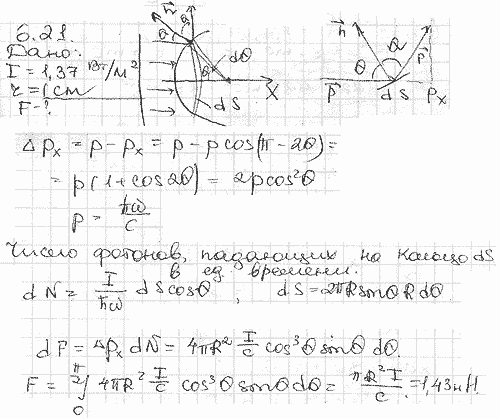 6.21.
Дано:
I = 1,37 Вт/м²
r = 1см
F - ?
n⃗ θ θ θ dθ dS X
n⃗ θ θ p⃗ p⃗ dS Pₓ
Δpₓ = p - pₓ = p - p cos(π - 2θ) =
= p(1 + cos 2θ) = 2p cos²θ
p = ħω/c
Число фотонов, падающих на кольцо dS
в ед. времени.
dN = I/ħω dS cosθ , dS = 2πR sinθ R dθ
dF = Δpₓ dN = 4πR² I/c cos³θ sinθ dθ.
F = ∫₀^(π/2) 4πR² I/c cos³θ sinθ dθ = πR²I/c = 1,43 нН.